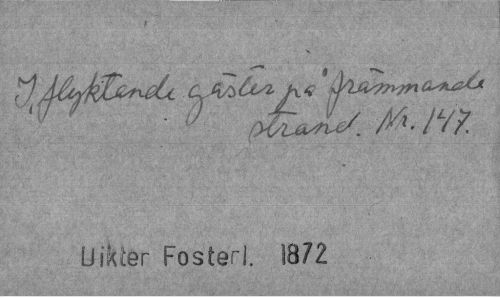 I, flyktande gäster på främmande
strand. Nr. 147.
Dikter Fosterl. 1872